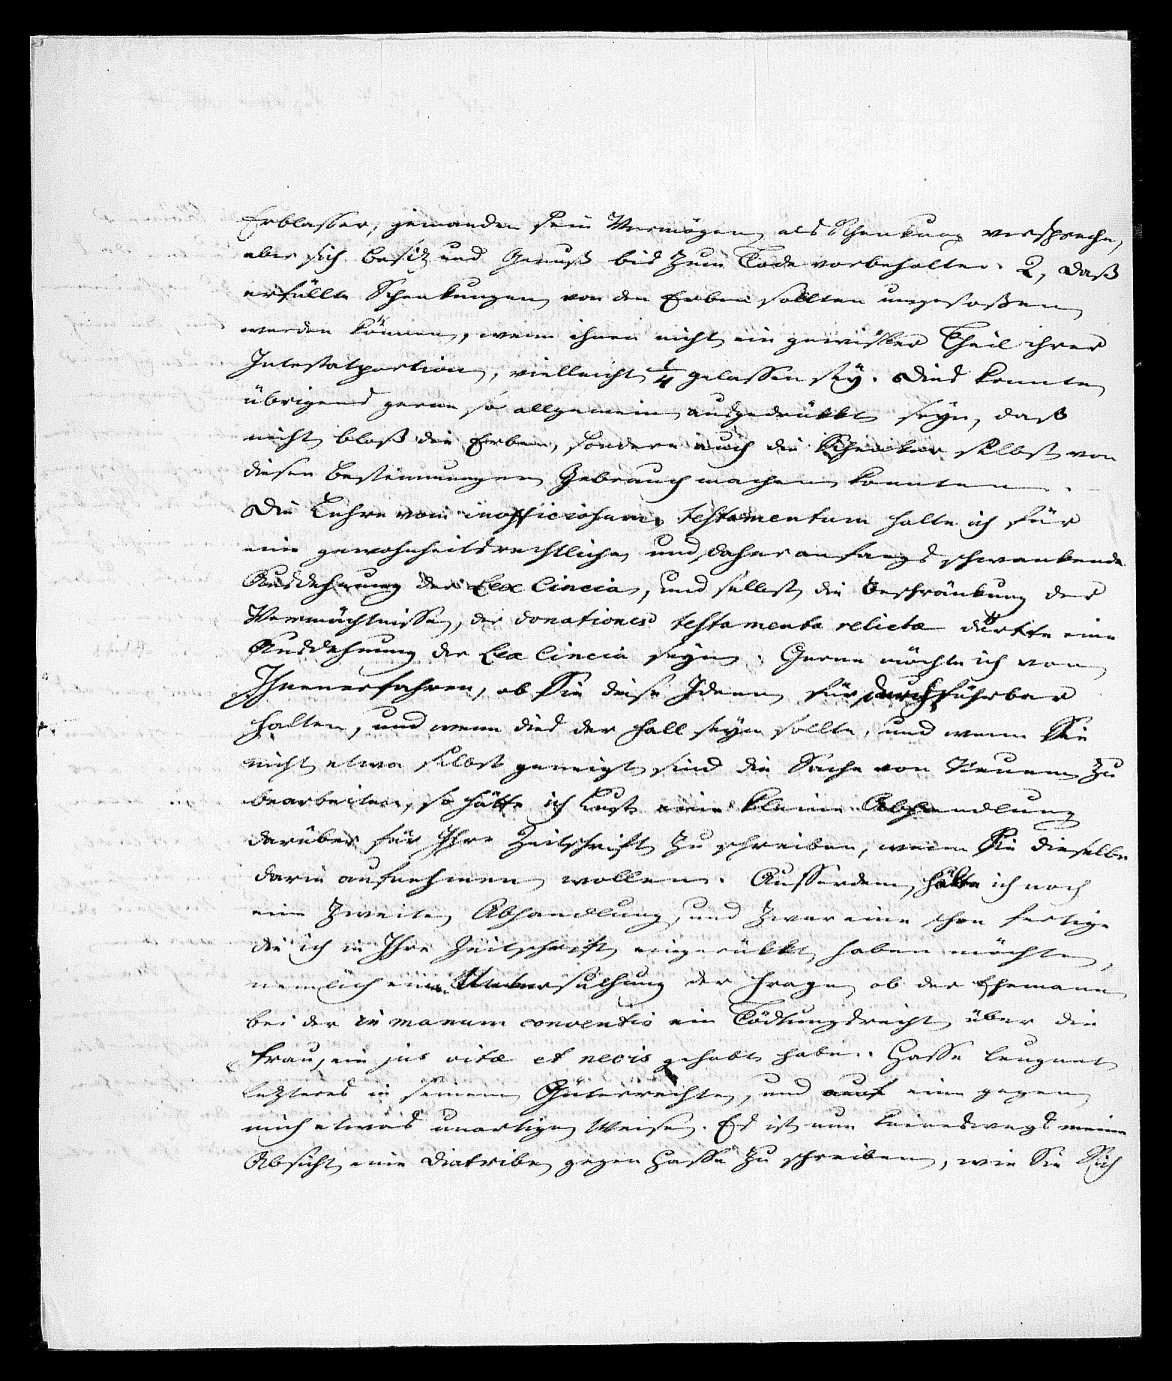 Erblasser, jemanden sein Vermögen als Schenkung verspreche,
aber sich Besitz und Genuß bis zum Tode vorbehalten. 2, daß
erfüllte Schenkungen von den Erben sollten umgestoßen
werden können, wenn ihnen nicht ein gewisser Theil ihrer
Intestatportion, vielleicht 1/4 gelassen sey. Dies konnte
übrigens gerne so allgemein ausgedrükkt seyn, daß
nicht bloß die Erben, sondern auch die Schenker selbst von
diesen Bestimmungen Gebrauch machen konnten.
Die Lehre vom inofficiosum testamentum halte ich für
eine gewohnheitsrechtliche und daher anfangs schwankende
Ausdehnung der Lex Cincia, und selbst die Beschränkung der
Vermächtnisse, der donationes testamento relictae dürfte eine
Ausdehnung der Lex Cincia seyn. Gerne möchte ich von
Ihnen erfahren, ob Sie diese Ideen für durchführbar
halten, und wenn dies der Fall seyn sollte, und wenn Sie
nicht etwa selbst geneigt sind die Sache von Neuem zu
bearbeiten, so hätte ich Lust eine kleine Abhandlung
darüber für Ihre Zeitschrift zu schreiben, wenn Sie dieselbe
darin aufnehmen wollen. Ausserdem hätte ich noch
eine zweite Abhandlung, und zwar eine schon fertige
die ich in Ihre Zeitschrift eingerükkt haben möchte,
nemlich eine Untersuchung der Frage, ob der Ehemann
bei der in manum conventio ein Tödtungsrecht über die
Frau, ein jus vitae et necis gehabt habe. Hasse leugnet
letzteres in seinem Güterrechte, und auf eine gegen
mich etwas unartige Weise. Es ist nun keineswegs meine
Absicht eine Diatribe gegen Hasse zu schreiben, wie Sie Sich